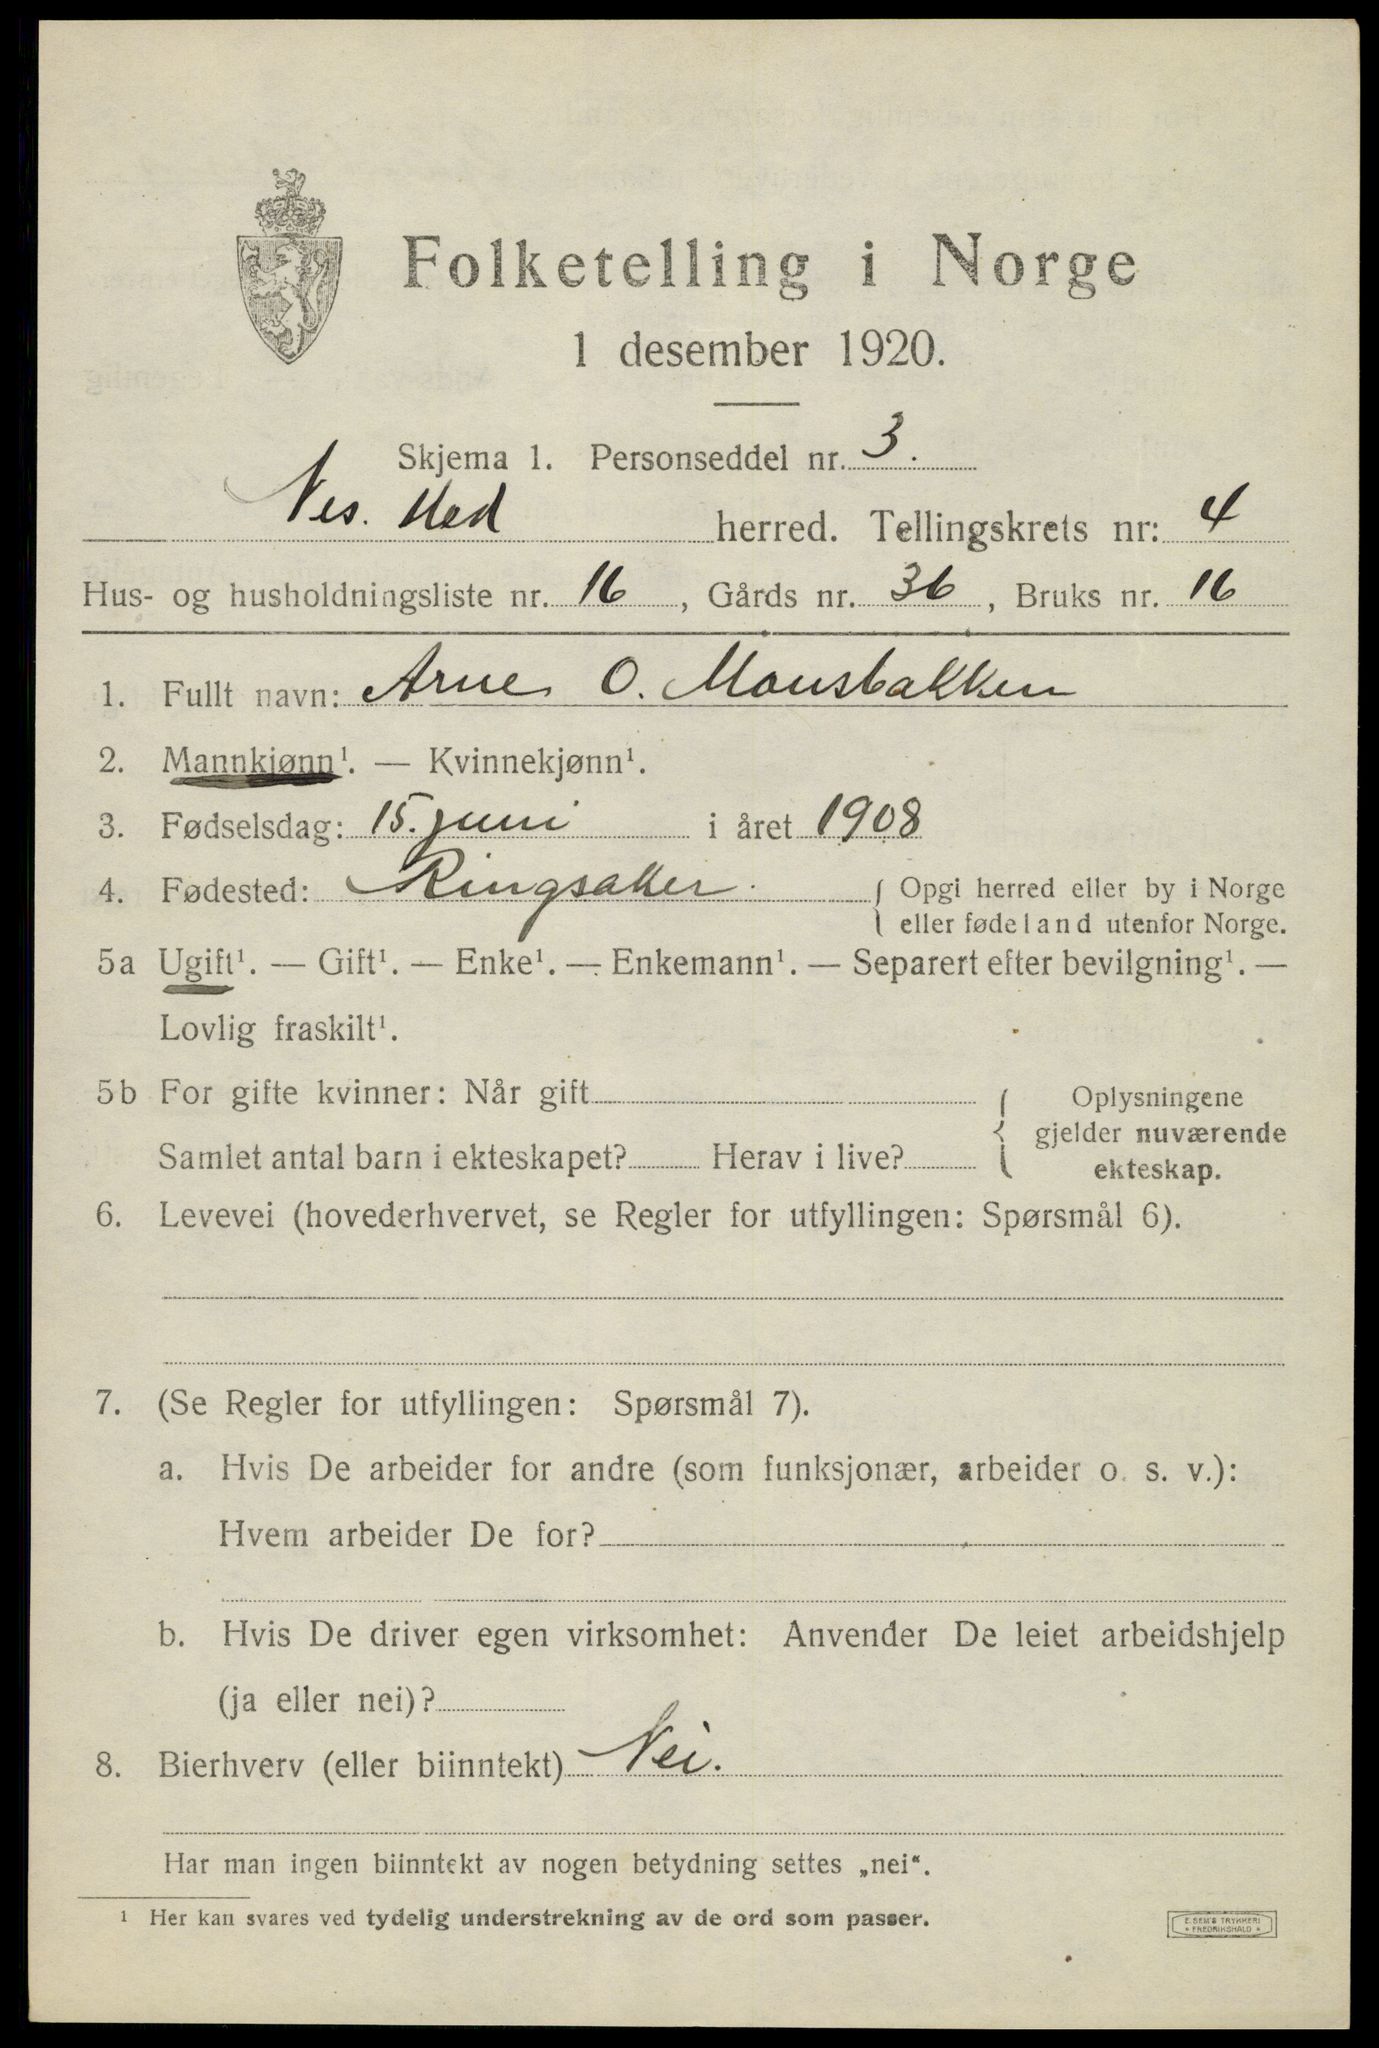 Folketelling i Norge
1 desember 1920.
Skjema 1. Personseddel nr. 3.
Nes. Hed herred. Tellingskrets nr: 4
Hus- og husholdningsliste nr. 16, Gårds nr. 36, Bruks nr. 16
1. Fullt navn: Arne O. Mousbakken
2. Mannkjønn¹. — Kvinnekjønn¹.
3. Fødselsdag: 15. juni i året 1908
4. Fødested: Ringsaker. { Opgi herred eller by i Norge
eller fødeland utenfor Norge.
5a Ugift¹. — Gift¹. — Enke¹. — Enkemann¹. — Separert efter bevilgning¹. —
Lovlig fraskilt¹.
5b For gifte kvinner: Når gift
Samlet antal barn i ekteskapet? Herav i live?
{ Oplysningene
gjelder nuværende
ekteskap.
6. Levevei (hovederhvervet, se Regler for utfyllingen: Spørsmål 6).
7. (Se Regler for utfyllingen: Spørsmål 7).
a. Hvis De arbeider for andre (som funksjonær, arbeider o. s. v.):
Hvem arbeider De for?
b. Hvis De driver egen virksomhet: Anvender De leiet arbeidshjelp
(ja eller nei)?
8. Bierhverv (eller biinntekt) Nei.
Har man ingen biinntekt av nogen betydning settes „nei“.
¹ Her kan svares ved tydelig understrekning av de ord som passer.
E. SEM'S TRYKKERI
* FREDRIKSHALD *